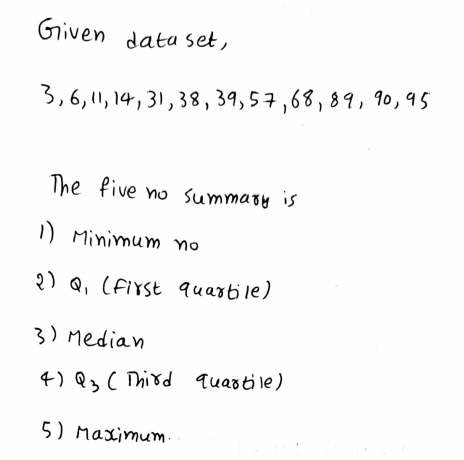 Given data set,
3, 6, 11, 14, 31, 38, 39, 57, 68, 89, 90, 95
The five no summary is
1) Minimum no
2) Q₁ (First quartile)
3) Median
4) Q₃ ( Third quartile)
5) Maximum.